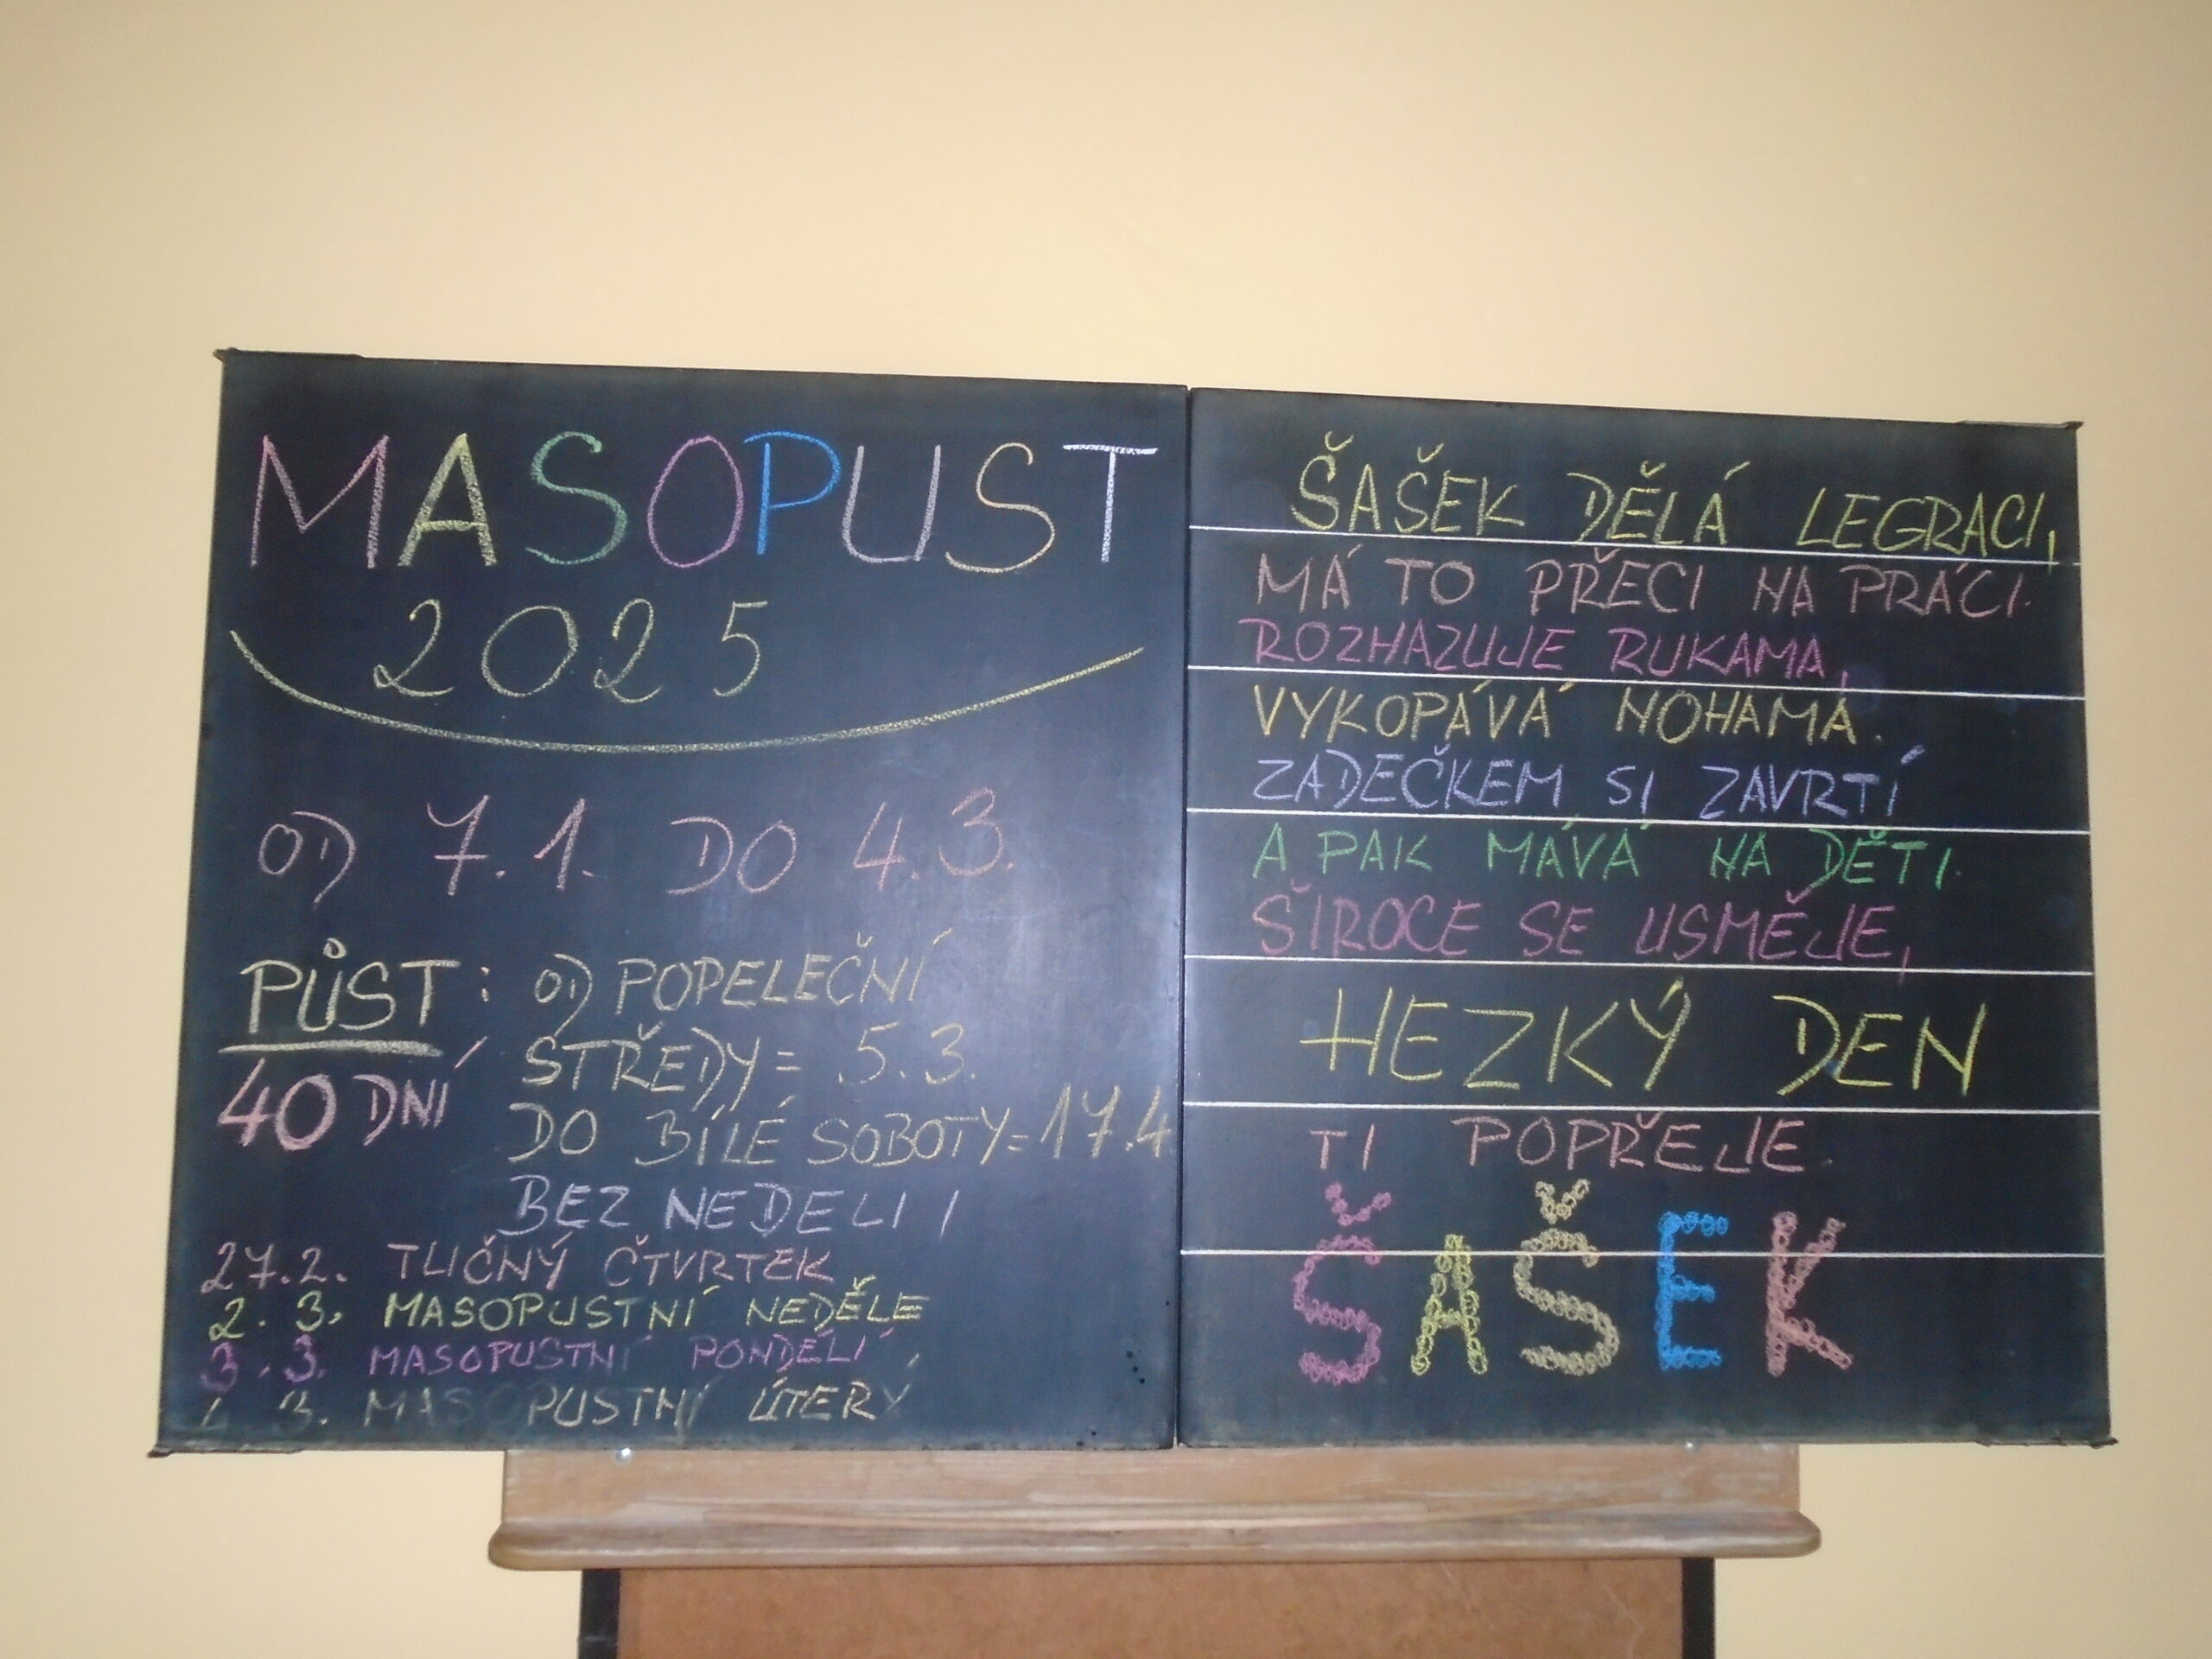 MASOPUST
2025
OD 7.1. DO 4.3.
PŮST: OD POPELEČNÍ
STŘEDY = 5.3.
40 DNÍ
DO BÍLÉ SOBOTY = 17.4
BEZ NEDELI I
27.2. TLIČNÝ ČTVRTEK
2.3. MASOPUSTNÍ NEDĚLE
3.3. MASOPUSTNÍ PONDĚLÍ
3. MASOPUSTNÍ ÚTERÝ
ŠAŠEK DĚLÁ LEGRACI,
MÁ TO PŘECI NA PRÁCI.
ROZHAZUJE RUKAMA,
VYKOPÁVÁ NOHAMA.
ZADEČKEM SI ZAVRTÍ
A PAK MÁVÁ NA DĚTI.
ŠIROCE SE USMĚJE,
HEZKÝ DEN
TI POPŘEJE.
ŠAŠEK